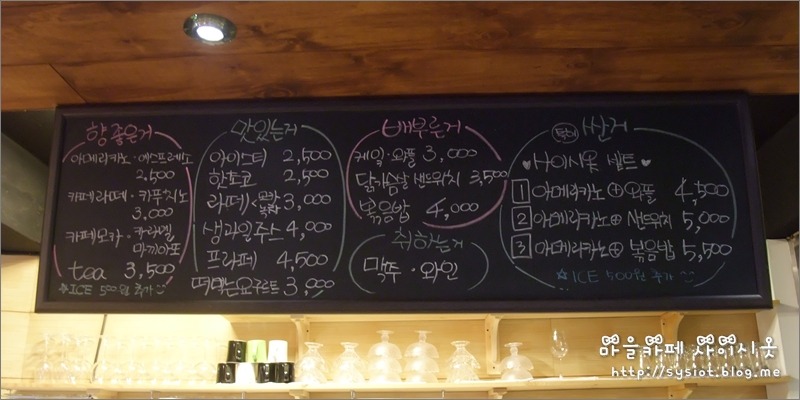 향 좋은거
아메리카노 · 에스프레소
2,500
카페라떼 · 카푸치노
3,000
카페모카 · 카라멜
마끼아또
tea 3,500
☆ICE 500원 추가
맛있는거
아이스티 2,500
핫초코 2,500
라떼 < 고구마 녹차 3,000
생과일주스 4,000
프라페 4,500
떠먹는요구르트 3,000
배부른거
케익 · 와플 3,000
닭가슴살 샌드위치 3,500
볶음밥 4,000
취하는거
맥주 · 와인
싼거
♥사이시옷 세트♥
1 아메리카노⊕와플 4,500
2 아메리카노⊕샌드위치 5,000
3 아메리카노⊕볶음밥 5,500
☆ICE 500원 추가
마을카페 사이시옷
http://sysiot.blog.me